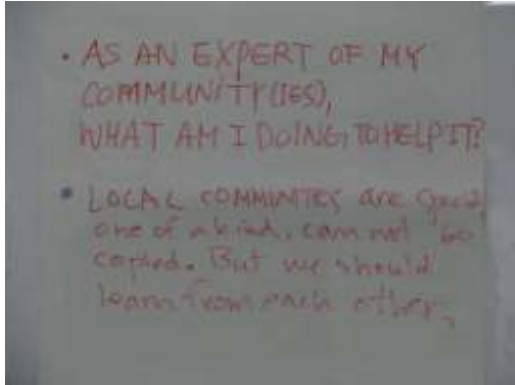 • AS AN EXPERT OF MY
COMMUNITY(IES),
WHAT AM I DOING TO HELP IT?
• LOCAL COMMUNITES are good,
one of a kind, can not be
copied. But we should
learn from each other.